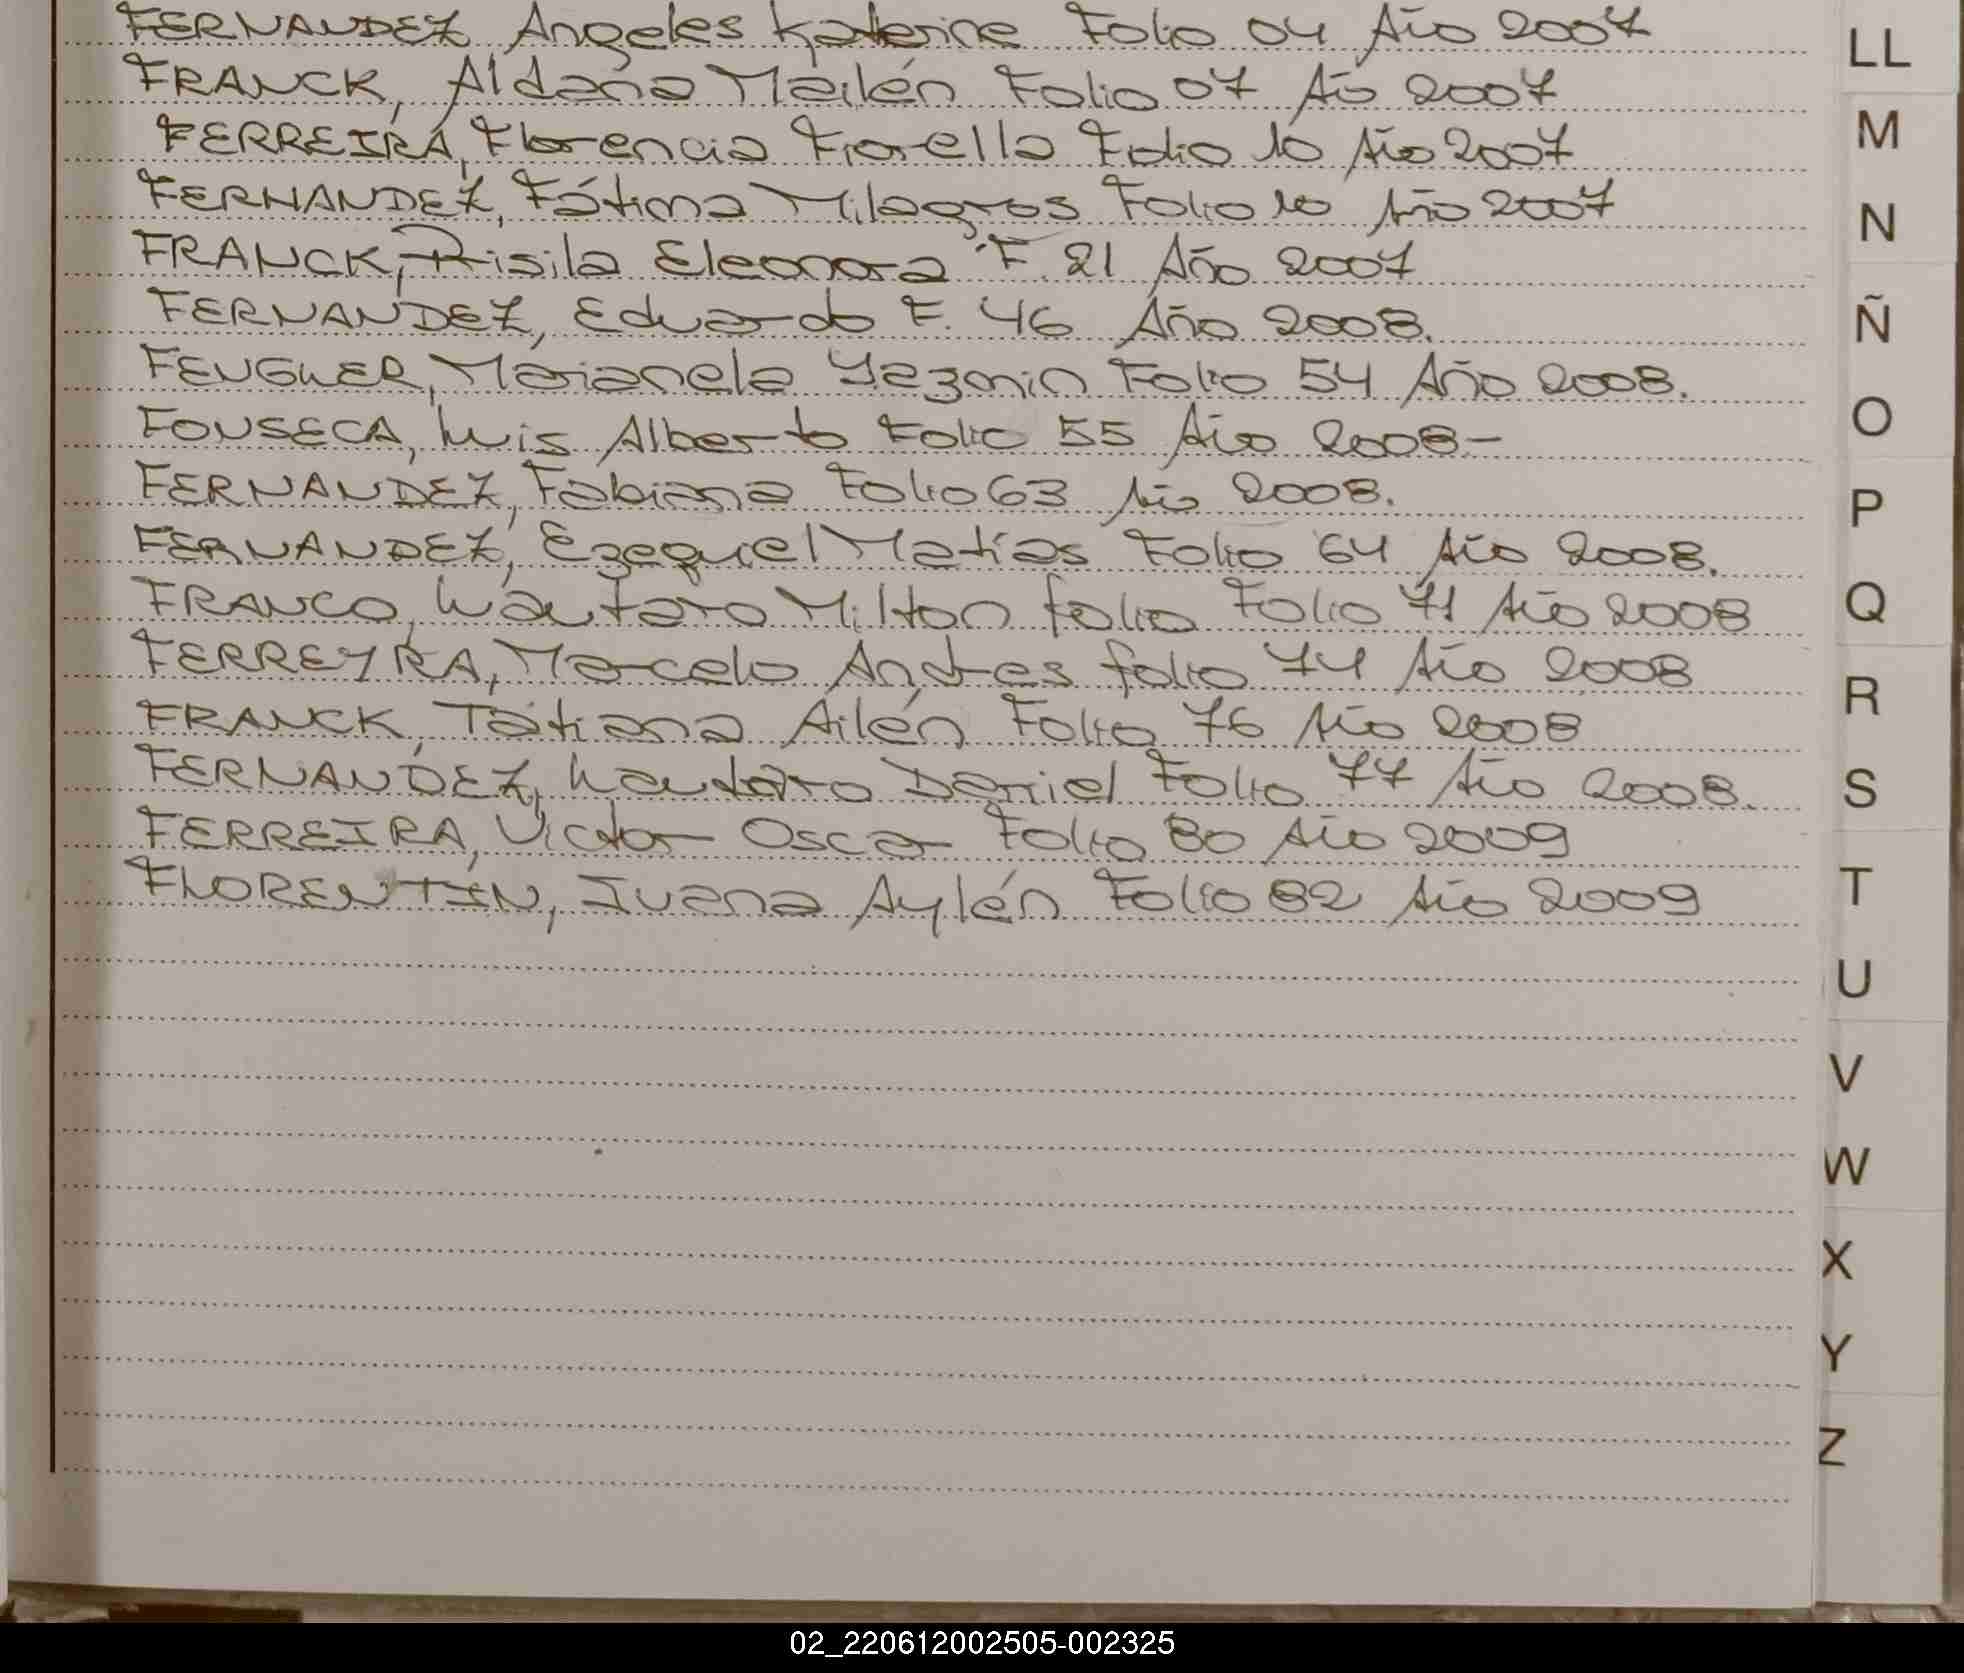 FERNANDEZ, Angeles Katerine Folio 04 Año 2007
FRANCK, Aldana Mailén Folio 07 Año 2007
FERREIRA, Florencia Fiorella Folio 10 Año 2007
FERNANDEZ, Fátima Milagros Folio 10 Año 2007
FRANCK, Risila Eleonora F. 21 Año 2007
FERNANDEZ, Eduardo F. 46 Año 2008.
FEUGLER, Marianela Yazmin Folio 54 Año 2008.
FONSECA, Luis Alberto Folio 55 Año 2008-
FERNANDEZ, Fabiana Folio 63 Año 2008.
FERNANDEZ, Ezequiel Matías Folio 64 Año 2008.
FRANCO, Lautaro Milton folio Folio 71 Año 2008
FERREYRA, Marcelo Andres folio 74 Año 2008
FRANCK, Tatiana Ailén Folio 76 Año 2008
FERNANDEZ, Lautaro Daniel Folio 77 Año 2008.
FERREIRA, Victor Oscar Folio 80 Año 2009
FLORENTIN, Ivana Aylén Folio 82 Año 2009
LL
M
N
Ñ
O
P
Q
R
S
T
U
V
W
X
Y
Z
02_220612002505-002325